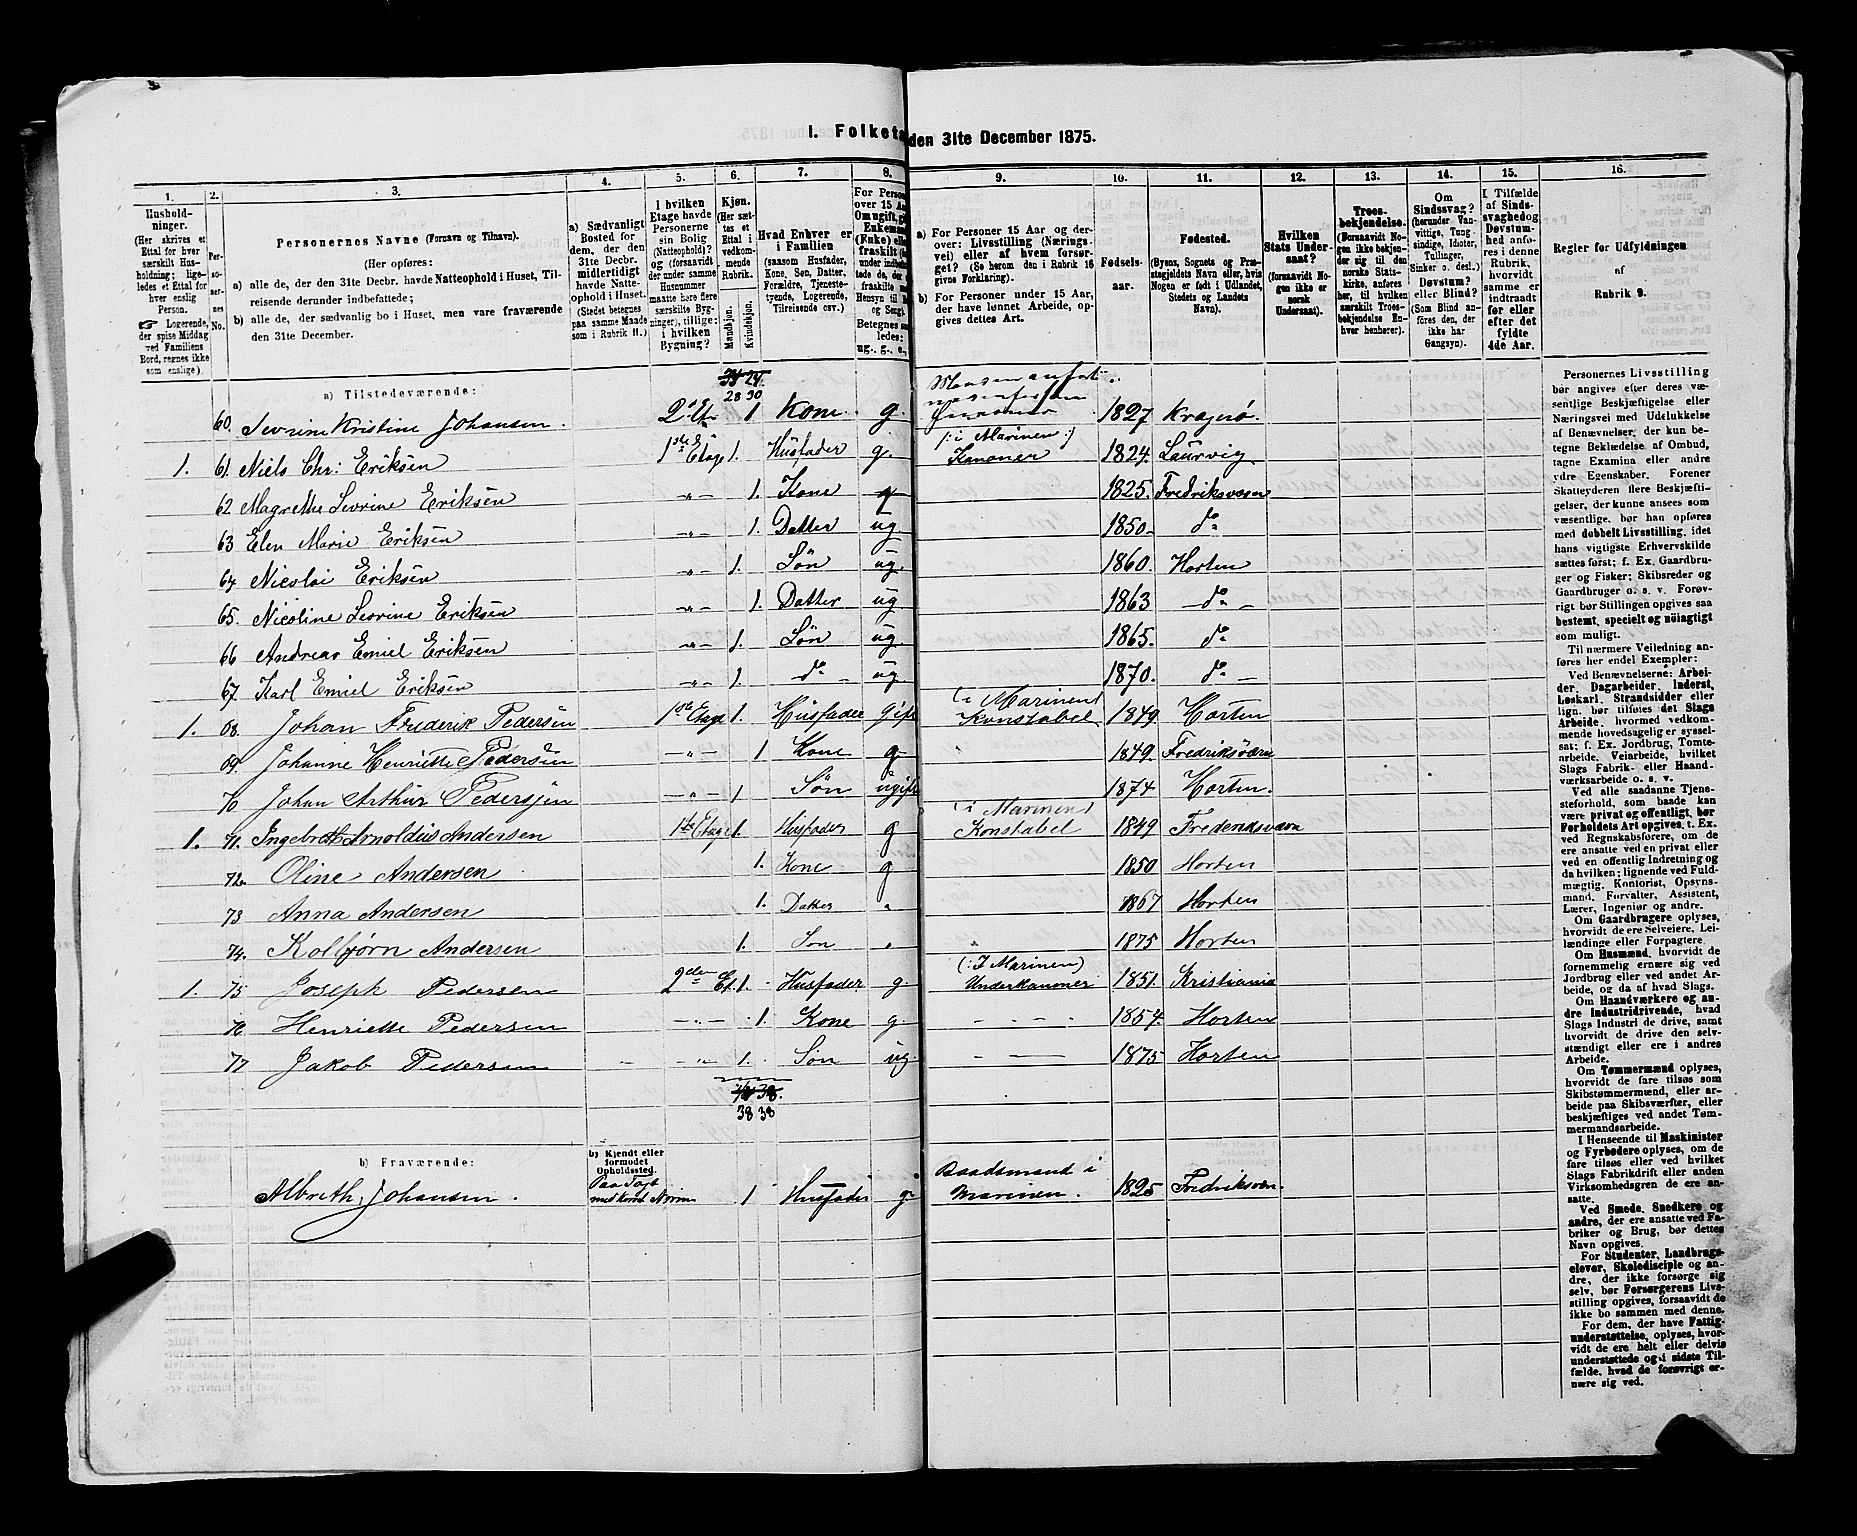 I. Folketæ den 31te December 1875.
1. 2. 3. 4. 5. 6. 7. 8. 9. 10. 11. 12. 13. 14. 15. 16.
Hushold-
ninger.
(Her skrives et
Ettal for hver
særskilt Hus-
holdning; lige-
ledes et Ettal for
hver enslig
Person.
Logerende,
der spise Middag
ved Familiens
Bord, regnes ikke
som enslige).
Per-
so-
ner-
nes
No.
Personernes Navne (Fornavn og Tilnavn).
(Her opføres:
a) alle de, der den 31te Decbr. havde Natteophold i Huset, Til-
reisende derunder indbefattede;
b) alle de, der sædvanlig bo i Huset, men vare fraværende
den 31te December.
a) Sædvanligt
Bosted for
dem, der den
31te Decbr.
midlertidigt
havde Natte-
ophold i Huset.
(Stedet betegnes
paa samme Maade
som i Rubrik 11.)
I hvilken
Etage havde
Personerne
sin Bolig
(Natteophold)?
og (forsaavidt
der under samme
Husnummer
maatte høre flere
særskilte Byg-
ninger), tillige:
i hvilken
Bygning?
Kjøn.
(Her sæt-
tes et
Ettal i
vedkom-
mende
Rubrik.
Mandkjøn.
Kvindekjøn.
Hvad Enhver er
i Familien
(saasom Husfader,
Kone, Søn, Datter,
Forældre, Tjeneste-
tyende, Logerende,
Tilreisende osv.)
For Person
over 15 Aa
Om ugift, gi
Enkeman
(Enke) elle
fraskilt
under indbe
tede de,
fraskilte
Hensyn til B
og Seng).
Betegnes sa
ledes:
ug., g., e.,
a) For Personer 15 Aar og der-
over: Livsstilling (Nærings-
vei) eller af hvem forsør-
get? (Se herom den i Rubrik 16
givne Forklaring).
b) For Personer under 15 Aar,
der have lønnet Arbeide, op-
gives dettes Art.
Fødsels-
aar.
Fødested.
(Byens, Sognets og Præ-
stegjeldets Navn eller, hvis
Nogen er født i Udlandet,
Stedets og Landets
Navn).
Hvilken
Stats Under-
saat?
(forsaavidt No-
gen ikke er
norsk
Undersaat).
Troes-
bekjendelse.
(Forsaavidt No-
gen ikke bekjen-
der sig til den
norske Stats-
kirke, anføres
her, til hvilken
særskilt Troes-
bekjendelse En-
hver henhører).
Om
Sindssvag?
(herunder Van-
vittige, Tung-
sindige, Idioter,
Tullinger,
Sinker o. desl.)
Døvstum?
eller Blind?
(Som Blind an-
føres den, der
ikke har
Gangsyn).
I Tilfælde
af Sinds-
svaghed og
Døvstum-
hed anfø-
res i denne
Rubrik,
hvorvidt
samme er
indtraadt
før eller
efter det
fyldte
4de Aar.
Regler for Udfyldningen
af
Rubrik 9.
a) Tilstedeværende: 28 30
60. Sevrine Kristine Johansen. 2den Et. 1 Kone. g. 1827 Kragerø.
1. 61. Niels Chr: Eriksen 1ste Etage 1. Husfader g. (: i Marinen :) Kanoner 1824. Laurvig
62 Magrethe Sevrine Eriksen -"- 1. Kone g 1825. Fredriksværn
63 Elen Marie Eriksen -"- 1. Datter ug 1850. do
64 Nicolai Eriksen -"- 1. Søn ug. 1860. Horten
65. Nicoline Sevrine Eriksen -"- 1. Datter ug 1863 do
66 Andreas Emiel Eriksen -"- 1. Søn ug. 1865. do
67. Karl Emiel Eriksen -"- 1. do ug 1870. do
1. 68. Johan Frederik Pedersen 1ste Etage 1. Husfader gift (i Marinen) Konstabel 1849. Horten
69. Johanne Henriette Pedersen -"- 1 Kone g 1849. Fredriksværn
70 Johan Arthur Pedersen -"- 1 Søn ugift 1874 Horten.
1. 71. Ingebreth Arnoldus Andersen 1ste Etage 1. Husfader g (i Marinen) Konstabel 1849 Frederiksværn
72. Oline Andersen. 1. Kone g 1850 Horten
73 Anna Andersen 1. Datter " 1867 Horten
74. Kolbjørn Andersen 1. Søn " 1875 Horten
1. 75 Joseph Pedersen 2den Et. 1. Husfader g. (: I Marinen) Underkanoner 1851. Kristiania
76 Henriette Pedersen -"- 1. Kone g. 1854. Horten
77 Jakob Pedersen -"- 1. Søn ug. 1875 Horten
38 38
b) Fraværende:
b) Kjendt eller
formodet
Opholdssted.
Albreth Johansen. Paa Togt 1 Husfader g. Baadsmand i Marinen. 1825 Fredriksværn.
Personernes Livsstilling
bør angives efter deres væ-
sentlige Beskjæftigelse eller
Næringsvei med Udelukkelse
af Benævnelser, der kun be-
tegne Beklædelse af Ombud,
tagne Examina eller andre
ydre Egenskaber. Forener
Skatteyderen flere Beskjæfti-
gelser, der kunne ansees som
væsentlige, bør han opføres
med dobbelt Livsstilling, idet
hans vigtigste Erhvervskilde
sættes først; f. Ex. Gaardbru-
ger og Fisker; Skibsreder og
Gaardbruger o. s. v. Forøv-
rigt bør Stillingen opgives saa
bestemt, specielt og nöiagtigt
som muligt.
Til nærmere Veiledning an-
føres her endel Exempler:
Ved Benævnelserne: Arbei-
der, Dagarbeider, Inderst,
Løskarl, Strandsidder eller
lign. bør tilføies det Slags
Arbeide, hvormed vedkom-
mende hovedsagelig er syssel-
sat; f. Ex. Jordbrug, Tomte-
arbeide, Veiarbeide, hvilket
Slags Fabrik- eller Haand-
værksarbeide o. s. v.
Ved alle saadanne Tjene-
steforhold, som baade kan
være privat og offentligt, bør
Forholdets Art opgives, t. Ex.
ved Regnskabsførere, om de
ere ansatte ved en privat eller
ved en offentlig Indretning og
da hvilken; lignende ved Fuld-
mægtig, Kontorist, Opsyns-
mand, Forvalter, Assistent,
Lærer, Ingeniør og andre.
Om Gaardbrugere oplyses,
hvorvidt de ere Selveiere, Lei-
lændinge eller Forpagtere.
Om Husmænd, hvorvidt de
fornemmelig ernære sig ved
Jordbrug eller ved andet Ar-
beide, og da af hvad Slags.
Om Haandværkere og an-
dre Industridrivende, hvad
Slags Industri de drive, samt
hvorvidt de drive den selv-
stændigt eller ere i andres
Arbeide.
Om Tømmermænd oplyses,
hvorvidt de fare tilsøs som
Skibstømmermænd, eller ar-
beide paa Skibsværfter, eller
beskjæftiges ved andet Tøm-
mermandsarbeide.
I Henseende til Maskinister
og Fyrbødere oplyses, om de
fare tilsøs eller ved hvilket
Slags Fabrikdrift eller anden
Virksomhedsgren de ere an-
satte.
Ved Smede, Snedkere og
andre, der ere ansatte ved Fa-
briker og Brug, bør dettes
Navn opgives.
For Studenter, Landbrugs-
elever, Skoledisciple og an-
dre, der ikke forsørge sig
selv, bør Forsørgerens Livs-
stilling opgives, forsaavidt de
ikke bo sammen med denne.
For dem, der have Fattig-
understøttelse, oplyses, hvor-
vidt de ere helt eller delvis
understøttede og i sidste Til-
fælde, hvad de forøvrigt er-
nære sig ved.